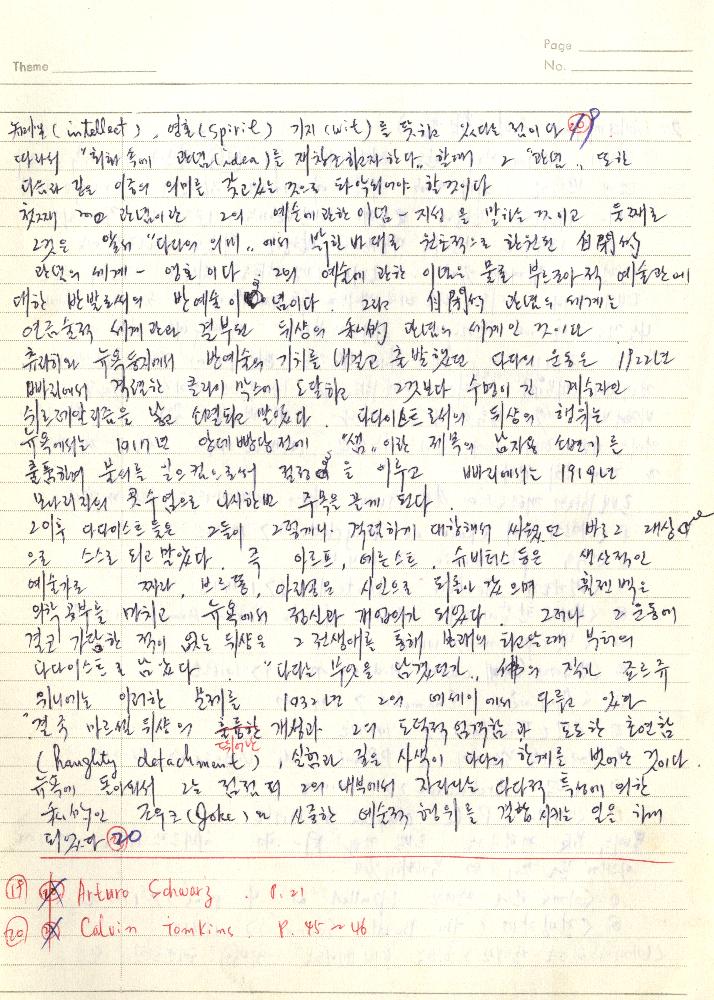 Page
Theme
No.
(intellect), 영혼(spirit) 기지(wit)를 뜻하고 있다는 점이다 19
따라서 "회화 속에 관념(idea)를 재창조하고자 한다" 할때 그 "관념", 또한
다음과 같은 이중의 의미를 갖고 있는 것으로 파악되어야 할것이다
첫째 관념이란 그의 예술에 관한 이념-지성을 말하는 것이고 둘째로
그것은 앞서 "다다의 의미"에서 밝힌바대로 원초적으로 환원된 自閉的
관념의 세계 - 영혼이다. 그의 예술에 관한 이념은 물론 부르조아적 예술관에
대한 반발로서의 반예술 이념이다. 그리고 自閉的 관념의 세계는
연금술적 세계관과 결부된 뒤샹의 私的 관념의 세계인 것이다
츄리히와 뉴욕등지에서 반예술의 기치를 내걸고 출발했던 다다의 운동은 1922년
빠리에서 격렬한 클라이막스에 도달하고 그것보다 수명이 긴 계승자인
쉬르레알리즘을 낳고 소멸되고 말았다. 다다이스트로서의 뒤샹의 행위는
뉴욕에서는 1917년 앙데빵당전에 "샘"이란 제목의 남자용 소변기를
출품하여 물의를 일으킴으로서 절정을 이루고 빠리에서는 1919년
모나리자의 콧수염으로 다시한번 주목을 끌게 된다.
그이후 다다이스트들은 그들이 그렇게나 격렬하게 대항해서 싸웠던 바로 그 대상
으로 스스로 되고 말았다. 즉 아르프, 에른스트, 슈비터스 등은 생산적인
예술가로 짜라, 브르똥, 아라공은 시인으로 되돌아 갔으며 휠젠벡은
의학공부를 마치고 뉴욕에서 정신과 개업의가 되었다. 그러나 그 운동에
결코 가담한 적이 없는 뒤샹은 그 전생애를 통해 본래의 타고날때 부터의
다다이스트로 남았다. "다다는 무엇을 남겼던가" 佛의 작가 죠르쥬
위니에는 이러한 문제를 1932년 그의 에세이에서 다루고 있다
"결국 마르셀 뒤샹의 뛰어난 개성과 그의 도덕적 엄격함과 도도한 초연함
(haughty detachment), 실험과 깊은 사색이 다다의 한계를 벗어난 것이다.
뉴욕에 돌아와서 그는 점점 더 그의 내부에서 자라나는 다다적 특성에 의한
조우크(Joke)와 신중한 예술적 행위를 결합시키는 일을 하게
되었다 20
19 Arturo Schwarz. P. 21
20 Calvin Tomkins. P. 45~46